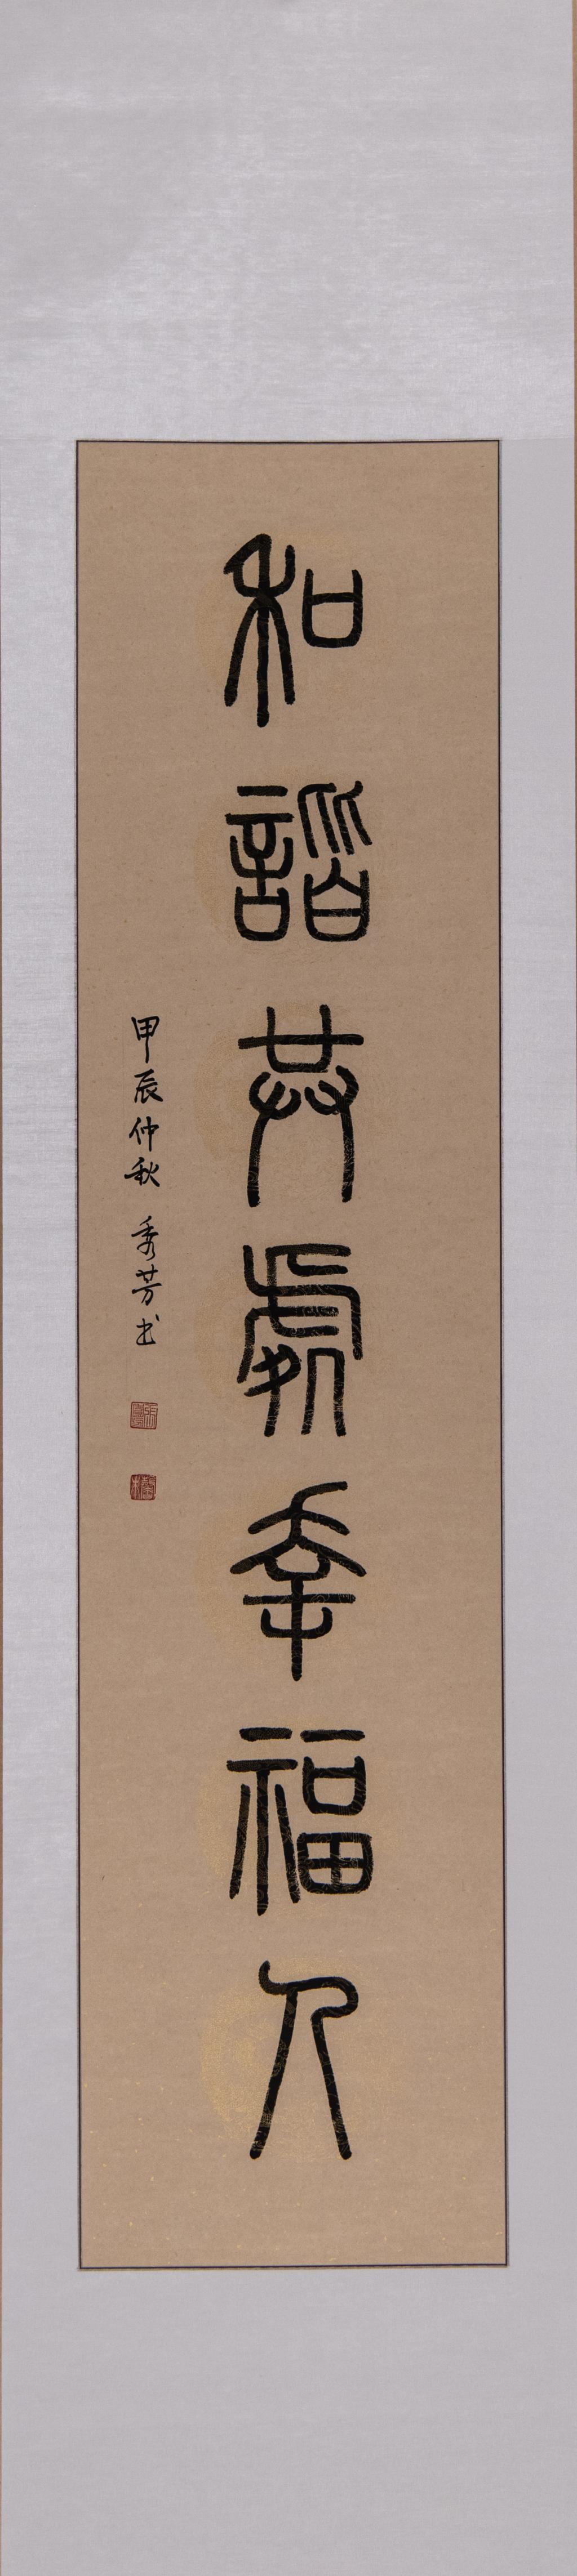 和諧共處幸福久
甲辰仲秋 秀芳书